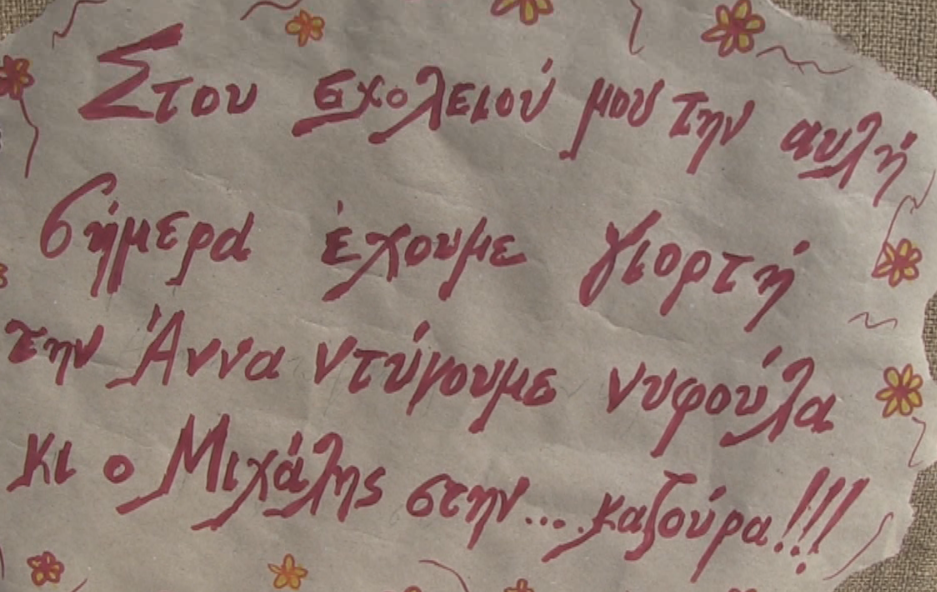 Στου σχολειού μου την αυλή
σήμερα έχουμε γιορτή
την Άννα ντύνουμε νυφούλα
κι ο Μιχάλης στην.... καζούρα!!!